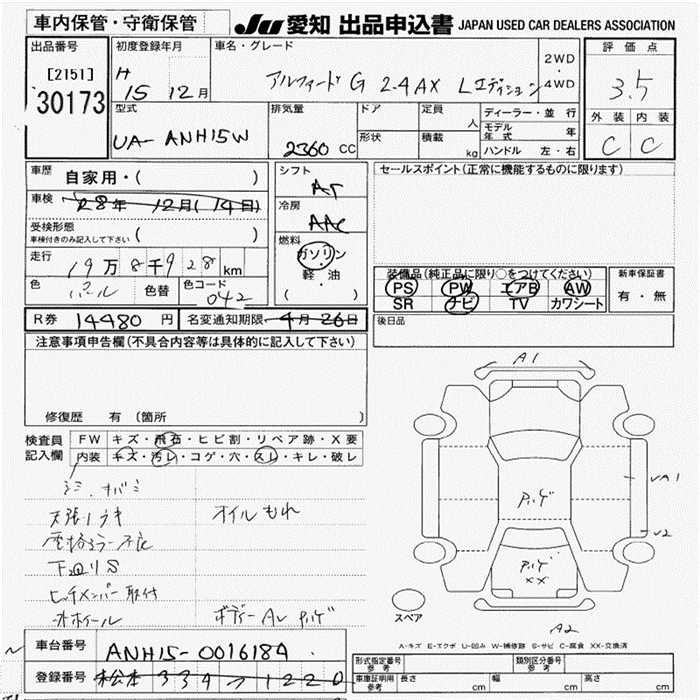 車内保管・守衛保管
JU 愛知 出品申込書 JAPAN USED CAR DEALERS ASSOCIATION
出品番号
[2151]
30173
初度登録年月
H 15 12月
車名・グレード
アルファード G 2.4 AX Lエディション
2WD
・
4WD
評価点
3.5
外装 内装
C C
型式
UA- ANH15W
排気量
2360 CC
ドア
形状
定員
人
積載
kg
ディーラー・並行
モデル年式 年
ハンドル 左・右
車歴 自家用・( )
車検 28年 12月(14日)
受検形態
車検付きのみ記入して下さい ( )
走行 19万8千928 km
色 パール 色替
色コード 042
シフト
AT
冷房
AAC
燃料
ガソリン
軽・油
( )
セールスポイント(正常に機能するものに限ります)
装備品(純正品に限り○をつけてください)
PS PW エアB AW
SR ナビ TV カワシート
新車保証書
有・無
後日品
R券 14480 円 名変通知期限 4月26日
注意事項申告欄(不具合内容等は具体的に記入して下さい)
修復歴 有 (箇所 )
検査員記入欄
FW キズ・飛石・ヒビ割・リペア跡・X要
内装 キズ・汚レ・コゲ・穴・スレ・キレ・破レ
シミ.
オイルもれ
下回りS
ヒッチメンバー取付
ボディーAU
A1
UA1
U2
XX
スペア
A2
A-キズ E-エクボ U-凹み W-補修跡 S-サビ C-腐食 XX-交換済
車台番号 ANH15-0016184
登録番号 松本 334 フ 1220
形式指定番号 参考
類別区分番号 参考
車庫証明用 参考 長さ cm 幅 cm 高さ cm